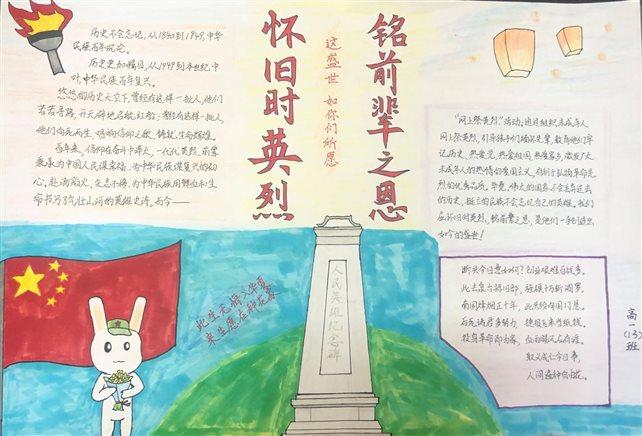 铭前辈之恩
怀旧时英烈
这盛世 如你们所愿
历史不会忘记,从1840到1949,中华
民族百年沉沦。
历史更加瞩目,从1949到本世纪中
叶中华民族百年复兴。
悠悠的历史天空下,曾经有这样一批人,他们
苦苦寻路,开天辟地启航红船;曾经有这样一批人,
他们向死而生,唱响信仰之歌,铸就生命辉煌。
百年来,信仰在奋斗中淬火,一代代英烈、前辈
秉承为中国人民谋幸福,为中华民族谋复兴的初
心,赴汤蹈火,矢志不渝,为中华民族用鲜血和生
命书写了气壮山河的英雄史诗。而今——
“网上祭英烈”活动,通过组织未成年人
网上祭英烈,引导孩子们缅怀先辈,教育他们牢
记历史,热爱党,热爱祖国,热爱家乡,激发广大
未成年人的热情的爱国主义,有利于弘扬革命先
烈的优秀品质。毕竟,伟大的国家不会忘记过去
的历史,挺立的民族不会忘记自己的英雄,我们
在怀旧时英烈,铭前辈之恩,是他们一手创造出
如今的盛世!
断头今日意如何?创业艰难百战多。
此去泉台招旧部,旌旗十万斩阎罗。
南国烽烟正十年,此头须向国门悬。
后死诸君多努力,捷报飞来当纸钱。
投身革命即为家,血雨腥风应有涯。
取义成仁今日事,
人间遍种自由花。
高一(13)班
此生无悔入华夏
来生愿在种花家
人民英雄纪念碑